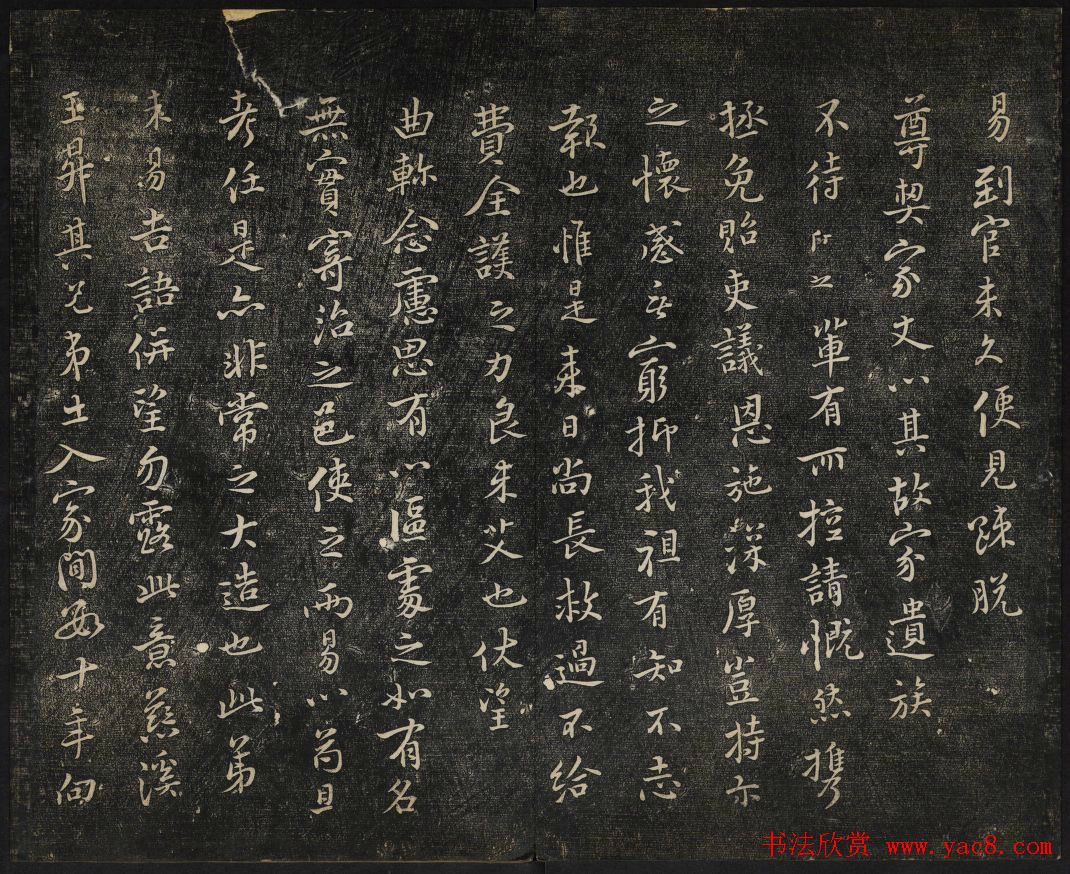 易到官未久便見踈脱
尊契家丈以其故家遺族
不待所之單有所控請慨然擕
拯免貽吏議恩施深厚豈特示
之懷感無窮抑我祖有知不忘
報也惟是來日尚長救過不給
費全護之力良未艾也伏望
曲軫念慮思有以區處之如有名
無實寄治之邑使之兩易以苟且
考任是亦非常之大造也此弟
未易告語併望勿露此意慈溪
王其兄弟士人家間數十年
书法欣赏 www.yac8.com